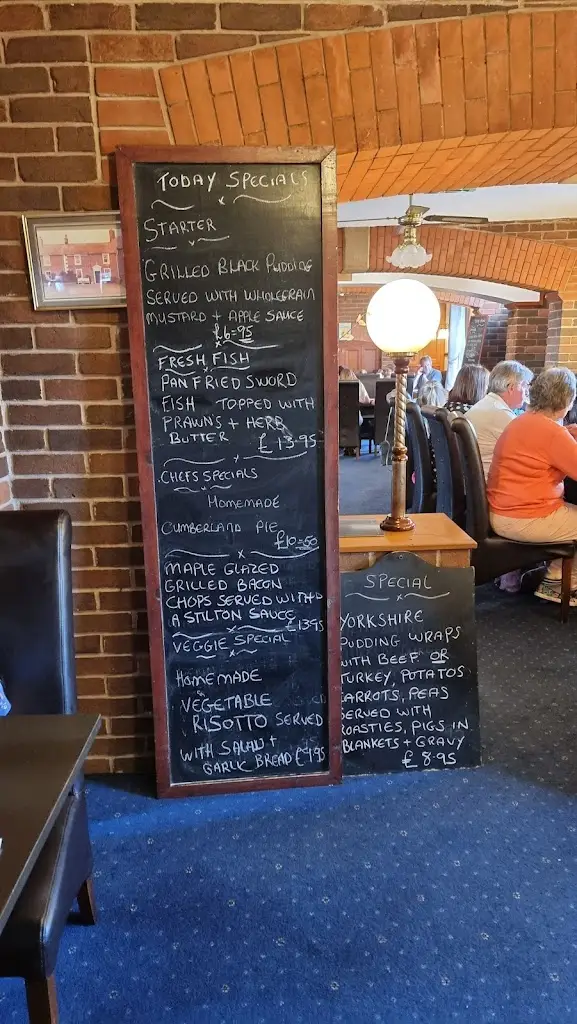 TODAY SPECIALS
STARTER
GRILLED BLACK PUDDING
SERVED WITH WHOLEGRAIN
MUSTARD + APPLE SAUCE
£6=95
FRESH FISH
PAN FRIED SWORD
FISH TOPPED WITH
PRAWN'S + HERB
BUTTER £13-95
CHEFS SPECIALS
HOMEMADE
CUMBERLAND PIE
£10=50
MAPLE GLAZED
GRILLED BACON
CHOPS SERVED WITH
A STILTON SAUCE £1395
VEGGIE SPECIAL
HOMEMADE
VEGETABLE
RISOTTO SERVED
WITH SALAD +
GARLIC BREAD £9.95
SPECIAL
YORKSHIRE
PUDDING WRAPS
WITH BEEF OR
TURKEY, POTATOS
CARROTS, PEAS
SERVED WITH
ROASTIES, PIGS IN
BLANKETS + GRAVY
£8-95